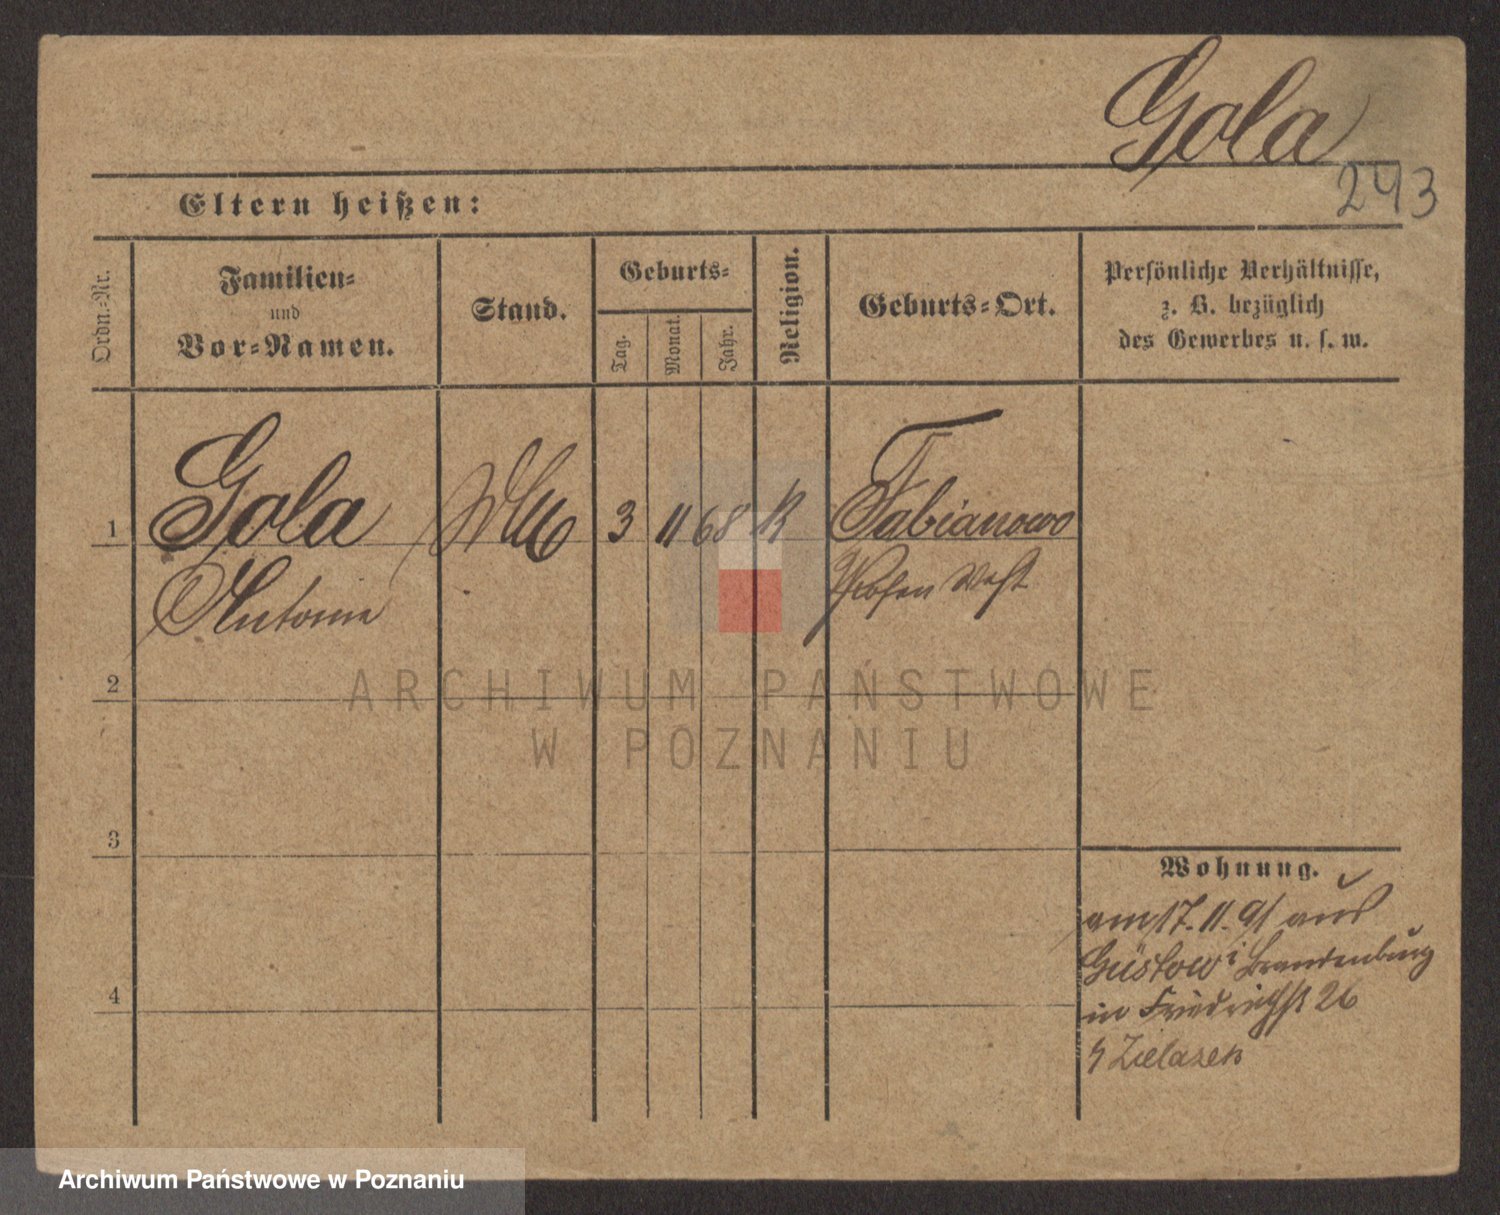 Gola
243
Eltern heißen:
Ordn.-Nr.
Familien-
und
Vor-Namen.
Stand.
Geburts-
Tag.
Monat.
Jahr.
Religion.
Geburts-Ort.
Persönliche Verhältnisse,
z. B. bezüglich
des Gewerbes u. s. w.
1 Gola 3 11 68 K Fabianowo
Antonie Posen West
2
3
4
Wohnung.
am 17. 11. 91 aus
Güstow i Brandenburg
in Friedrichst 26
Zielazek
ARCHIWUM PAŃSTWOWE
W POZNANIU
Archiwum Państwowe w Poznaniu